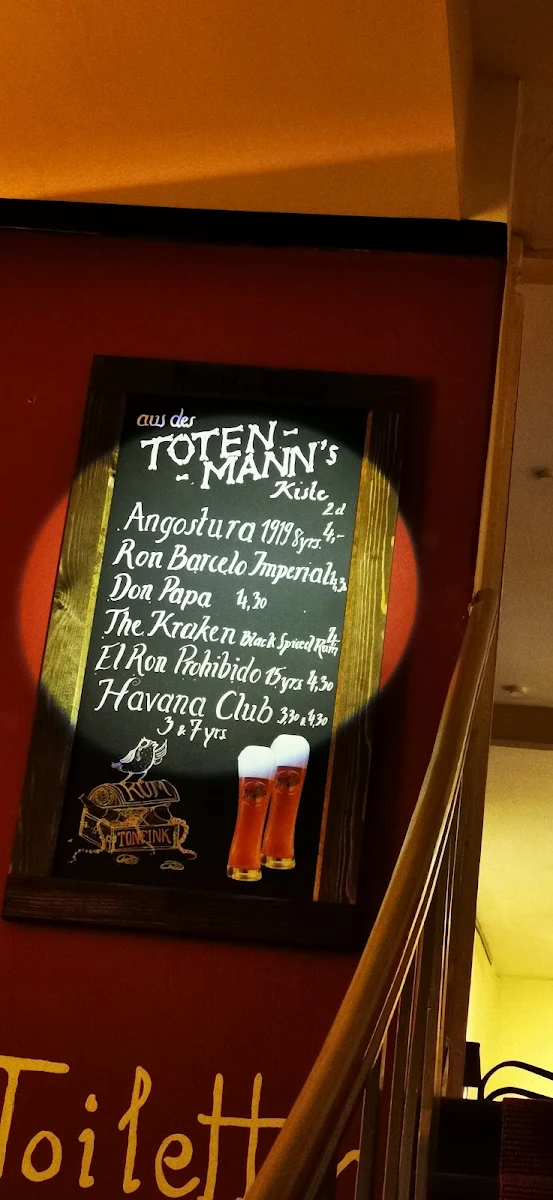 aus des
TOTEN-
-MANN's
Kiste
2cl
Angostura 1919 8yrs. 4,-
Ron Barcelo Imperial 4,3
Don Papa 4,30
The Kraken Black Spiced Rum 4,-
El Ron Prohibido 15yrs 4,30
Havana Club 3,30 & 4,30
3 & 7 yrs
RUM
Toilett